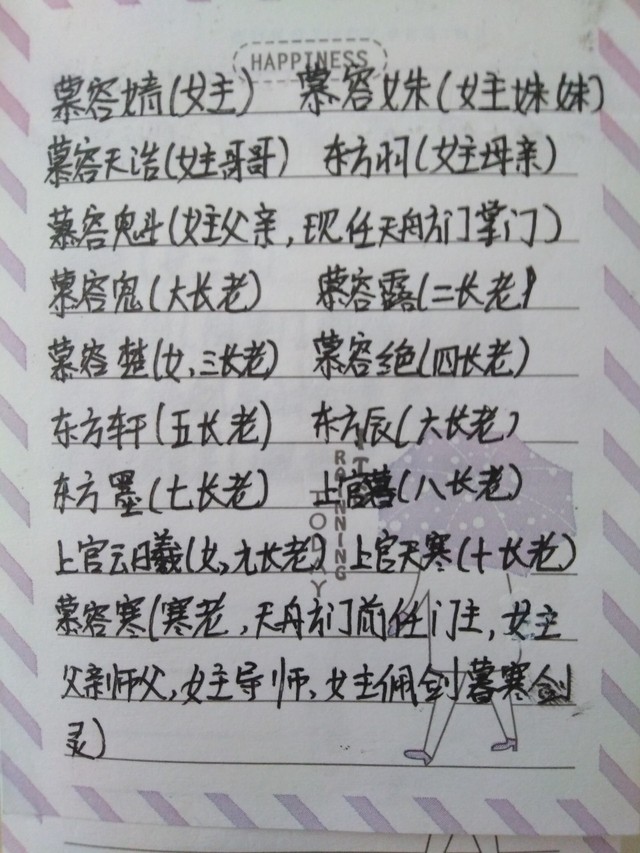 HAPPINESS
慕容婧(女主) 慕容姝(女主妹妹)
慕容天浩(女主哥哥) 东方羽(女主母亲)
慕容魁(女主父亲,现任天舟方门掌门)
慕容鬼(大长老) 慕容露(二长老)
慕容楚(女,三长老) 慕容绝(四长老)
东方轩(五长老) 东方辰(六长老)
东方墨(七长老) 上官(八长老)
上官云曦(女,九长老) 上官天寒(十长老)
慕容寒(寒老,天舟方门前任门主,女主
父亲师父,女主导师、女主佩剑暮寒剑
灵)
RANNING
TODAY